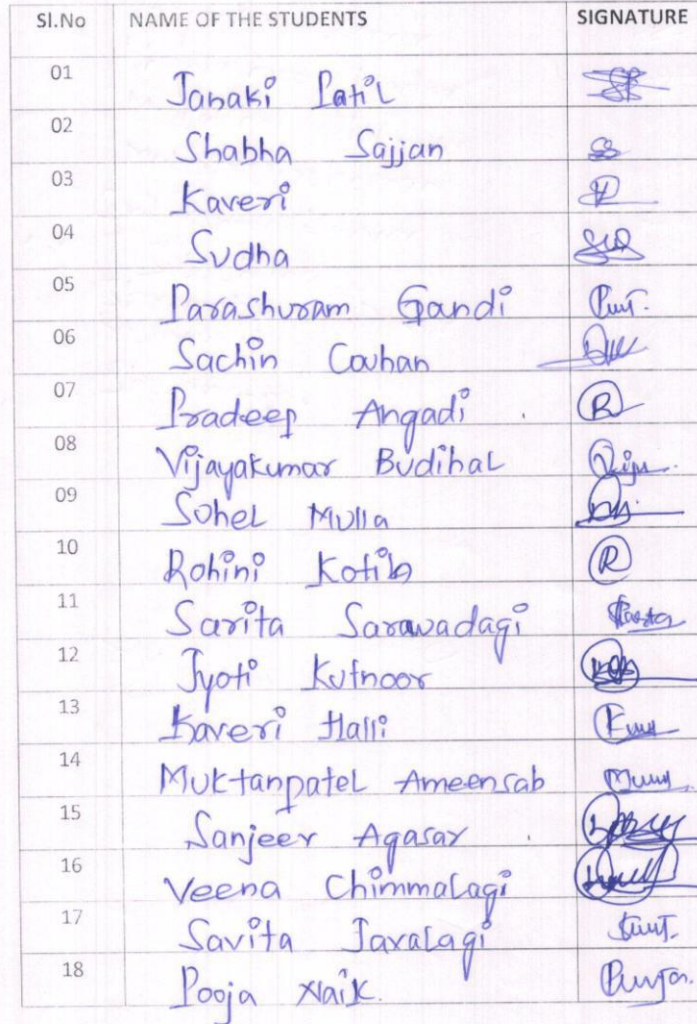 Sl.No NAME OF THE STUDENTS SIGNATURE
01 Janaki Patil
02 Shabha Sajjan
03 Kaveri
04 Sudha
05 Parashuram Gandi
06 Sachin Couhan
07 Pradeep Angadi R
08 Vijayakumar Budihal
09 Sohel Mulla
10 Rohini R
11 Sarita Sarawadagi
12 Jyoti Kutnoor
13 Kaveri Halli
14 Muktanpatel Ameensab
15 Sanjeev Agasar
16 Veena Chimmalagi
17 Savita Javalagi
18 Pooja Naik.